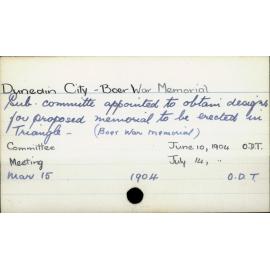 Dunedin City - Boer War Memorial
Sub. committe appointed to obtain designs
for proposed memorial to be erected in
Triangle - (Boer War memorial)
Committee June 10, 1904 O.D.T.
Meeting July 14, "
Mar 15 1904 O.D.T